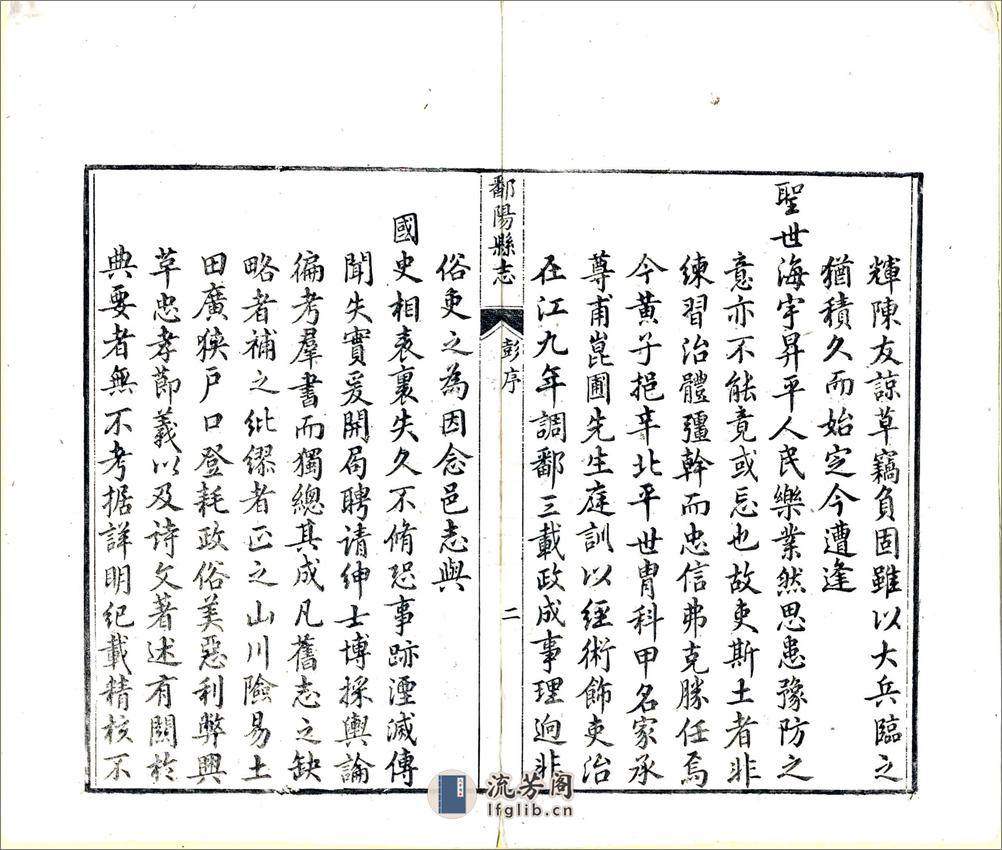 輝陳友諒草竊負固雖以大兵臨之
猶積久而始定今遭逢
聖世海宇昇平人民樂業然思患豫防之
意亦不能竟或忘也故吏斯土者非
練習治體彊幹而忠信弗克勝任焉
今黃子挹辛北平世胄科甲名家承
尊甫崑圃先生庭訓以經術飾吏治
在江九年調鄱三載政成事理迥非
鄱陽縣志
彭序
二
俗吏之為因念邑志與
國史相表裏失久不脩恐事跡湮滅傳
聞失實爰開局聘請紳士博採輿論
徧考羣書而獨總其成凡舊志之缺
略者補之紕繆者正之山川險易土
田廣狹戶口登耗政俗美惡利弊興
草忠孝節義以及詩文著述有關於
典要者無不考据詳明紀載精核不
流芳阁
lfglib.cn